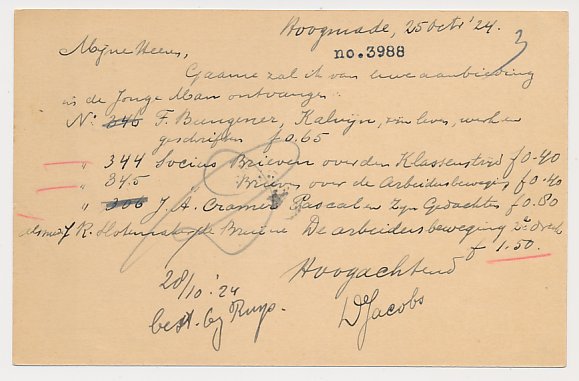 Hoogmade, 25 Octr '24.
no. 3988
Mijne Heeren,
Gaarne zal ik van uwe aanbieding
in de Jonge Man ontvangen:
No: 346 F. Bungener, Kalvijn, zijn leven, werk en
geschriften f 0.65
" 344 Socius Brieven over den Klassenstrijd f 0.40
" 345 " Brieven over de Arbeidersbeweging f 0.40
" 306 J. A. Cramer Pascal en Zijn Gedachten f 0.80
alsmede R. Slotemaker de Bruine De arbeidersbeweging 2e druk
f 1.50.
Hoogachtend
D Jacobs
28/10 '24
best. bij Ruys.